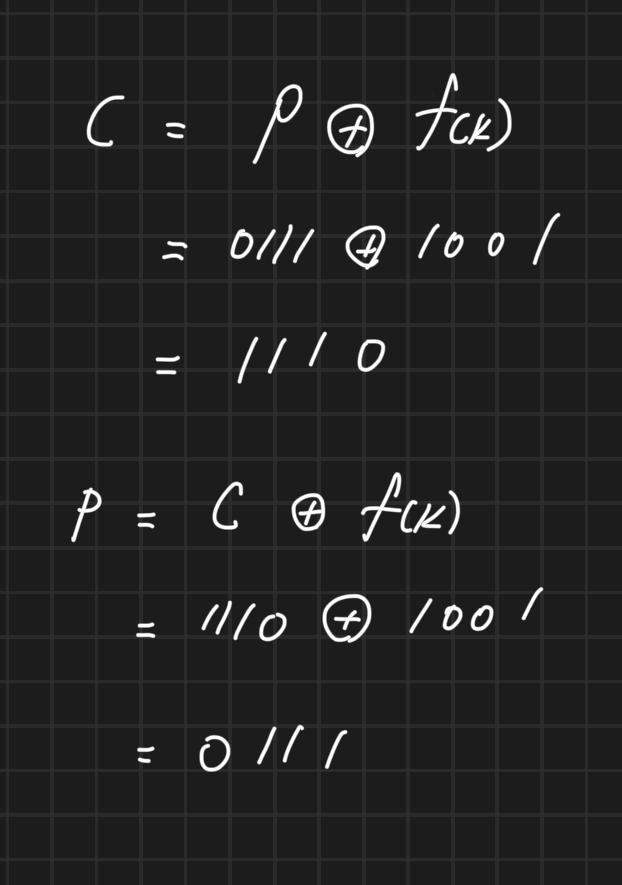 C = P ⊕ f(K)
= 0111 ⊕ 1001
= 1110
P = C ⊕ f(K)
= 1110 ⊕ 1001
= 0111